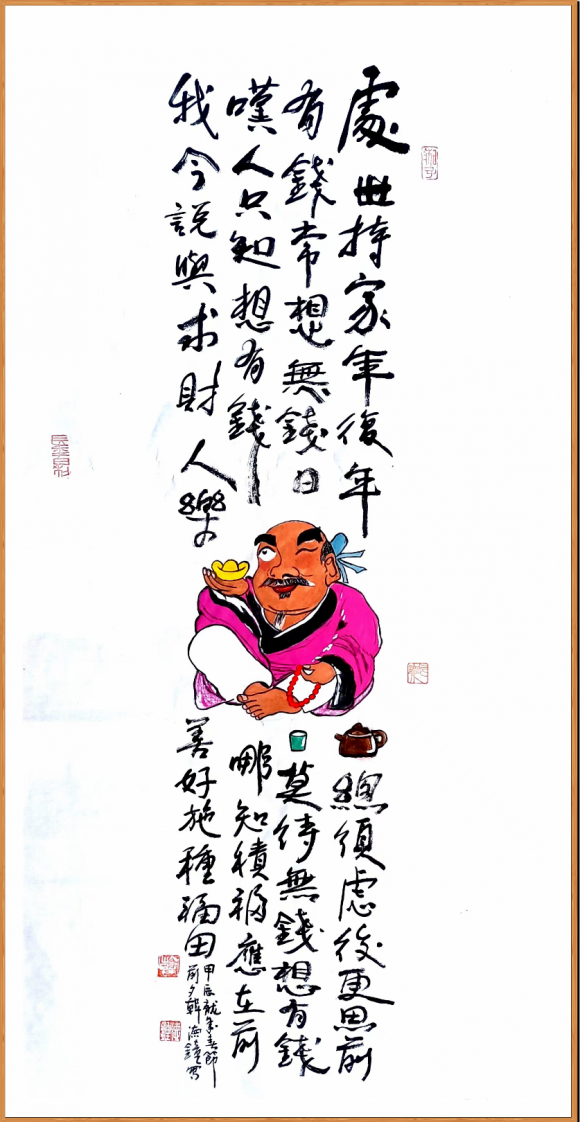 處世持家年復年
總須慮後更思前
有錢常想無錢日
莫待無錢想有錢
嘆人只知想有錢
哪知積福應在前
我今說與求財人
樂善好施種福田
甲辰龍年春節
前夕韓海鐘寫